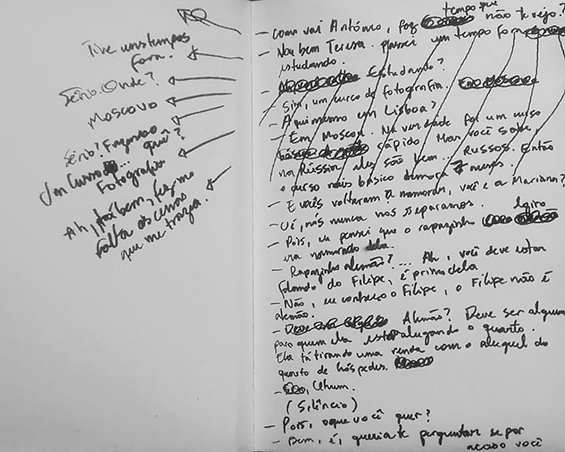 Tive uns tempos
fora.
Sério. Onde?
Moscovo
Sério? Fazendo
quê?
Um Curso
Fotografia
Ah, tá bem, fez-me
falta as cenas
que me trazia.
tempo que
— Como vai António, faz não te vejo?
— Vou bem Teresa. Passei um tempo fora
estudando.
— Estudando?
— Sim, um curso de fotografia.
— Aqui mesmo em Lisboa?
— Em Moscou. Na verdade foi um curso
rápido. Mas você sabe,
na Rússia eles são bem... Russos. Então
o curso mais básico demora 7 meses.
— E vocês voltaram a namorar, você e a Mariana?
— Ué, nós nunca nos separamos.
— Pois, eu pensei que o rapazinho loiro
era namorado dela.
— Rapazinho alemão? ... Ah, você deve estar
falando do Filipe, é primo dela
— Não, eu conheço o Filipe, o Filipe não é
alemão.
— Alemão? Deve ser alguém
para quem ela está alugando o quarto.
Ela tá tirando uma renda com o aluguel do
quarto de hóspedes.
— Uhum.
(Silêncio)
— Pois, o que você quer?
— Bem, é, queria te perguntar se por
acaso você